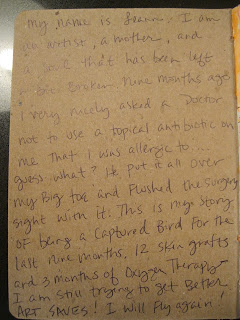 My name is Jeannie. I am
an artist, a mother, and
a soul that has been left
Broken. Nine months ago
I very nicely asked a Doctor
not to use a topical antibiotic on
me that I was allergic to....
guess what? He put it all over
my Big toe and Flushed the surgery
sight with it. This is my story
of being a Captured Bird For the
last nine months, 12 skin grafts
and 3 months of Oxygen Therapy
I am still trying to get Better
ART SAVES! I will Fly again!